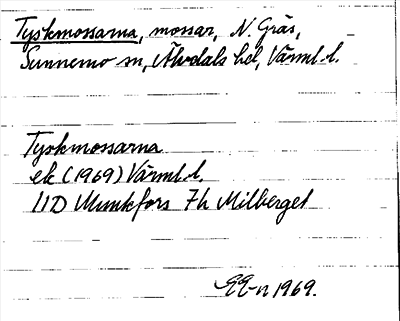 Tyskmossarna, mossar, N. Gräs,
Sunnemo sn, Älvdals hd, Värml. l.
Tyskmossarna
ek (1969) Värml. l.
11D Munkfors 7h Milberget
EE-n 1969.